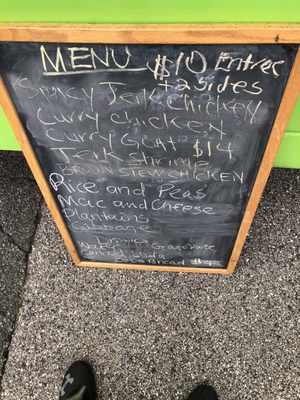 MENU $10 Entree
+2 Sides
Spicy Jerk Chicken
Curry chicken
Curry Goat $14
Jerk Shrimp
BROWN STEW CHICKEN
Rice and Peas
Mac and Cheese
Plantains
Cabbage
Drinks
Canned Soda
Bread $4